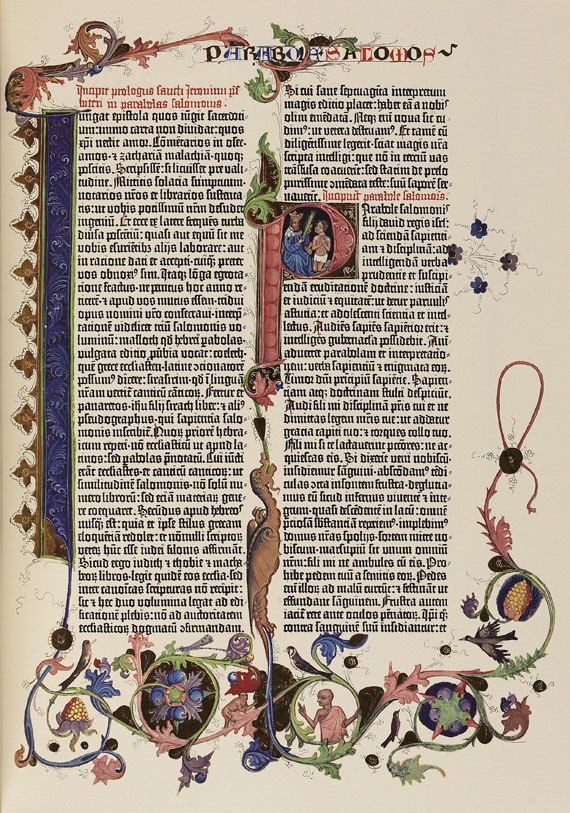 PARABOLE SALOMOIS
Incipit prologus sancti Jeronimi
in parabolas salomonis.
Iungat epistola quos iũgit sacerdoti-
um: immo carta non dividat: quos
xp̄i nectit amor. Cõmētarios in osee.
amos. ⁊ zachariam malachiā. quoq;
poscitis. Scripsissē: si licuisset pre vali-
tudine. Mittitis solacia sumptuum.
notarios nr̄os et librarios sustenta-
tis: ut vobis potissimū nr̄m desudet
ingeniū. Et ecce ex latere frequēs turba
diversa poscētiū: quasi aut equū sit me
vobis esurientib; alijs laborare: aut
in ratione dati et accepti. cuiq̄ preter
vos obnoxi⁹ sim. Itaq; lõga egrota-
tione fractus. ne penitus hoc anno re-
ticerē ⁊ apud vos mutus essem. tridui
opus nomini vr̄o consecravi. interp̄-
tationē videlicet triū salomonis vo-
luminū: masloth qd̄ hebrei pabolas.
vulgata editio pvbia vocat: coeleth.
que grece eccl̄iasten. latine ↄcionatorē
possum⁹ dicere: sirasirim. qd̄ i linguā
nr̄am vertit̄ canticū cãticor̨. Fertur et
panaretos. ihũ filij sirach liber: ⁊ ali⁹
pseudographus. qui sapientia salo-
monis inscribit̄. Quor̨ priorē hebra-
icum repperi. nõ eccl̄iasticū ut apud la-
tinos: sed pabolas p̄notatū. Cui iūcti
erāt eccl̄iastes. et canticū canticor̨: ut
similitudinē salomonis. nõ solū nu-
mero librorū: sed etiã materiar̨ gene-
re coequaret. Secūdus apud hebreos
nusq̄ est: quia et ipse stilus grecam
eloquētiā redolet: et nõnulli scriptor̨
veter̨ hūc esse iudei filonis affirmāt.
Sicud ergo iudith ⁊ thobie ⁊ macha-
beor̨ libros. legit quidē eos eccl̄ia. sed
inter canonicas scripturas nõ recipit:
sic ⁊ hec duo volumina legat ad edi-
ficationē plebis: nõ ad auctoritatem
eccl̄iasticor̨ dogmatū ↄfirmandam.
Si cui sane septuaginta interpretum
magis editio placet: habet eā a nobis
olim emēdatā. Neq; eni nova sic cu-
dim⁹: ut vetera destruam⁹. Et tamē cū
diligētissime legerit. sciat magis nr̄a
scripta intelligi: que nõ in terciū vas
trāsfusa coacuerīt: sed statim de prelo
purissime ↄmēdata teste: suū sapore ser-
vaverīt. Incipiūt parabole salomonis.
Parabole salomonis
filij david regis isrl̄:
ad sciendā sapienti-
am ⁊ disciplinā: ad
intelligendā verba
prudentie et suscipi-
endā eruditationē doctrine: iusticiā
et iudiciū ⁊ equitatē: ut detur parvulis
astutia: et adolescenti sciencia et intel-
lectus. Audiēs sapiēs sapiētior erit: ⁊
intelligēs gubernacla possidebit. Ani-
advertet parabolam et interpretatio-
nem: verba sapientiū ⁊ enigmata eor̨.
Timor dn̄i principiū sapiētie. Sapien-
tiam atq; doctrinam stulti despiciūt.
Audi fili mi disciplinā pr̄is tui et ne
dimittas legem mr̄is tue: ut addatur
gratia capiti tuo: ⁊ torques collo tuo.
Fili mi si te lactaverint pctores: ne ac-
quiescas eis. Si dixerīt veni nobiscū.
insidiemur sāguini. abscõdam⁹ tēdi-
culas ↄtra insontem frustra. deglutia-
mus eū sicud infernus viventē ⁊ inte-
grum. quasi descēdentē in lacū: omnē
p̄ciosā s̄bstanciā repiem⁹. implebim⁹
domus nr̄as spolijs. sortem mitte no-
biscum. marsupiū sit unum omnium
nr̄m: fili mi ne ambules cū eis. Pro-
hibe pedem tuū a semitis eor̨. Pedes
eni illor̨ ad malū currūt: ⁊ festināt ut
effundant sāguinem. Frustra autem
iacit̄ rete ante oculos pēnator̨. Ip̄i q̄q̨
contra sanguinē suū insidiantur: et